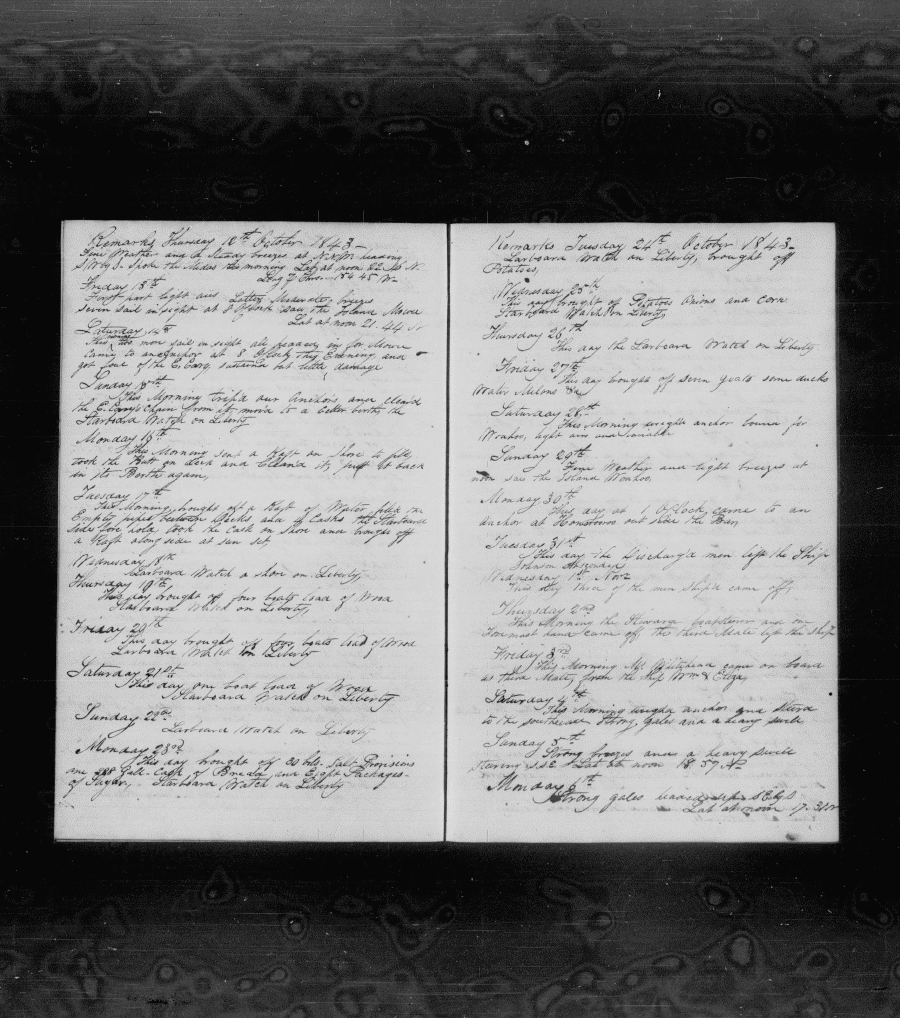 Remarks Thursday 12th October 1843 —
Fine Weather and a Steady breezes at N.N.W. heading
S.W by S. Spoke the Midas this morning Lat at noon 22. N
Long 154 45 W—
Friday 13th
First part light airs Latter Moderate breeze
seven sail in sight at saw the Island Mowee
Lat at noon 21.44 N
Saturday, 14th
This morning two more sail in sight all in for Mowee
Came to an anchor at 8 O'Clock this Evening and
got foul of the E. Cary, sustained but little damage
Sunday 15th
This Morning trip'd our anchors and clear'd
the E. Cary's Chain from it, movd to a better birth the
Starboard Watch on Liberty
Monday 16th
This Morning sent a Raft on Shore to fill,
took the Butt on deck and Clean'd it, put it back
in its Berth again,
Tuesday 17th
This Morning, brought off a Raft of Water fill'd the
Empty pipes between decks and 9 Casks the Starboard
side fore hold, took the Cask on Shore and brought off
a Raft alongside at sun set,
Wednesday 18th
Larboard Watch a shore on Liberty
Thursday 19th,
This day brought off four boats load of Wood
Starboard Watch on Liberty,
Friday 20th
This day brought off four boats load of Wood
Larboard Watch on Liberty
Saturday 21st
This day one boat load of Wood
Starboard Watch on Liberty
Sunday 22nd
Larboard Watch on Liberty
Monday 23rd
This day brought off 20 bbls. Salt Provisions
one 288 Gall. Cask of Bread, and Eight Packages
of Sugar, - Starboard Watch on Liberty
Remarks Tuesday 24th October 1843—
Larboard Watch on Liberty, brought off
Potatoes,
Wednesday 25th
This day brought of Potatoes Onions and corn
Starboard Watch on Liberty,
Thursday 26th
This day the Larboard Watch on Liberty
Friday 27th
This day bought off seven goats some ducks
Water Milons &c
Saturday 28th
This Morning weighd anchor bound for
Woahoo, light airs and variable
Sunday 29th
Fine Weather and light breezes at
noon saw the Island Woahoo.
Monday 30th
This day at 1 O'Clock, came to an
anchor at out side the Bar,
Tuesday 31st
This day the Discharg'd men left the Ship
Johnson Absented
Wednesday 1st Novr
This day three of the men Ship'd came off,
Thursday 2nd
This Morning the Steward boatsteerer and one
Foremast hand came off, the third Mate left the Ship
Friday 3rd
This Morning Mr came on board
as third Mate, from the Ship Wm & Eliza,
Saturday 4th
This Morning weighd anchor and stood
to the southward strong, gales and a heavy swell
Sunday 5th
Strong breezes and a heavy swell
steering S.S.E Lat at noon 18 57 N—
Monday 6th
Strong gales
Lat at noon 17.31 N